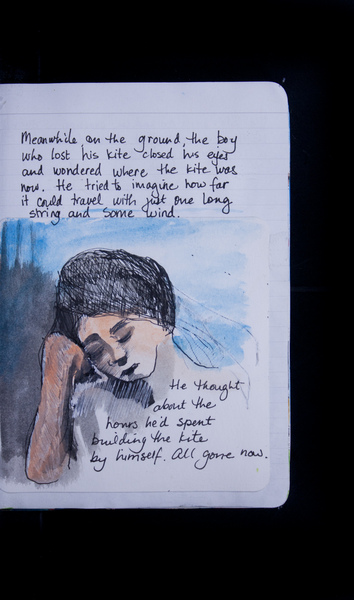 Meanwhile on the ground, the boy
who lost his kite closed his eyes
and wondered where the kite was
now. He tried to imagine how far
it could travel with just one long
string and some wind.
He thought
about the
hours he'd spent
building the kite
by himself. All gone now.